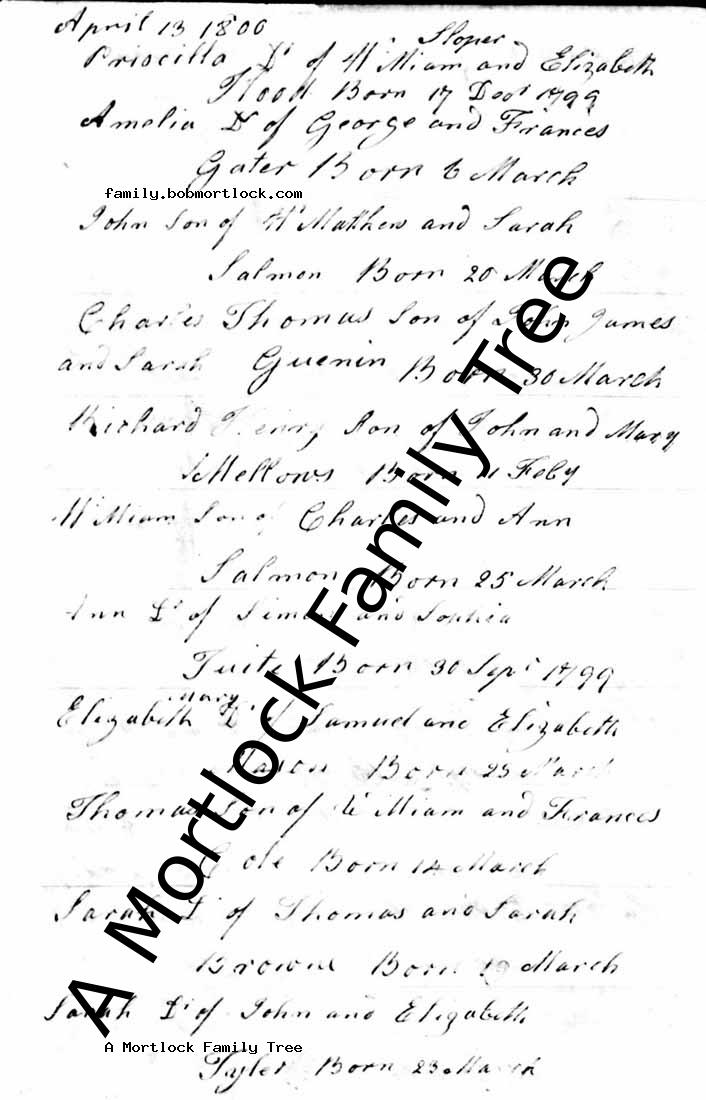 April 13 1800
Sloper
Priscilla Dr of William and Elizabeth
Flood Born 17 Decr 1799
Amelia Dr of George and Frances
Gater Born 6 March
family.bobmortlock.com
John Son of Wm Mathew and Sarah
Salmon Born 20 March
Charles Thomas Son of John James
and Sarah Guenin Born 30 March
Richard Henry Son of John and Mary
Mellows Born 11 Feby
William Son of Charles and Ann
Salmon Born 25 March
Ann Dr of Simon and Sophia
Tuite Born 30 Sepr 1799
Mary
Elizabeth Dr of Samuel and Elizabeth
Mason Born 23 March
Thomas Son of William and Frances
Cole Born 14 March
Sarah Dr of Thomas and Sarah
Browne Born March
Sarah Dr of John and Elizabeth
A Mortlock Family Tree
Tyler Born 23 March
A Mortlock Family Tree